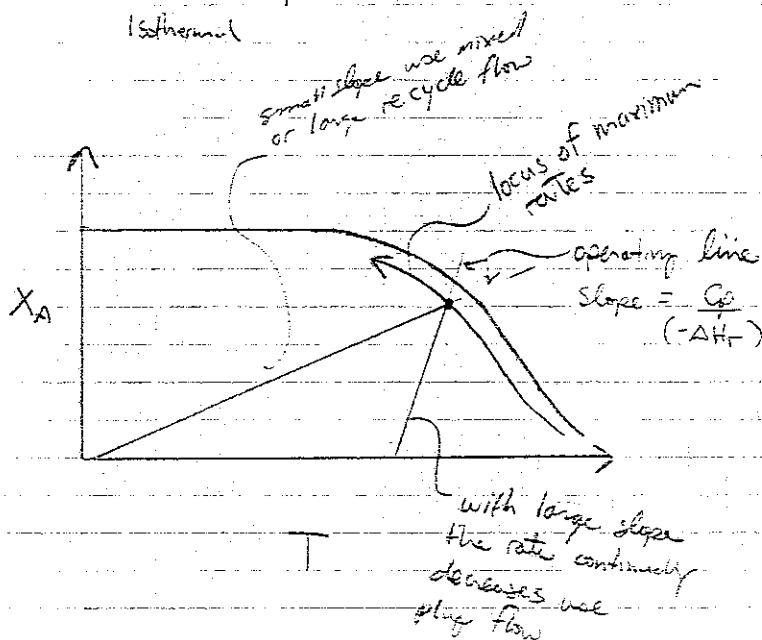 Isothermal
small slope use mixed
or large recycle flow
locus of maximum
rates
operating line
Slope = Cp
(-ΔHr)
XA
with large slope
the rate continually
decreases use
plug flow
T